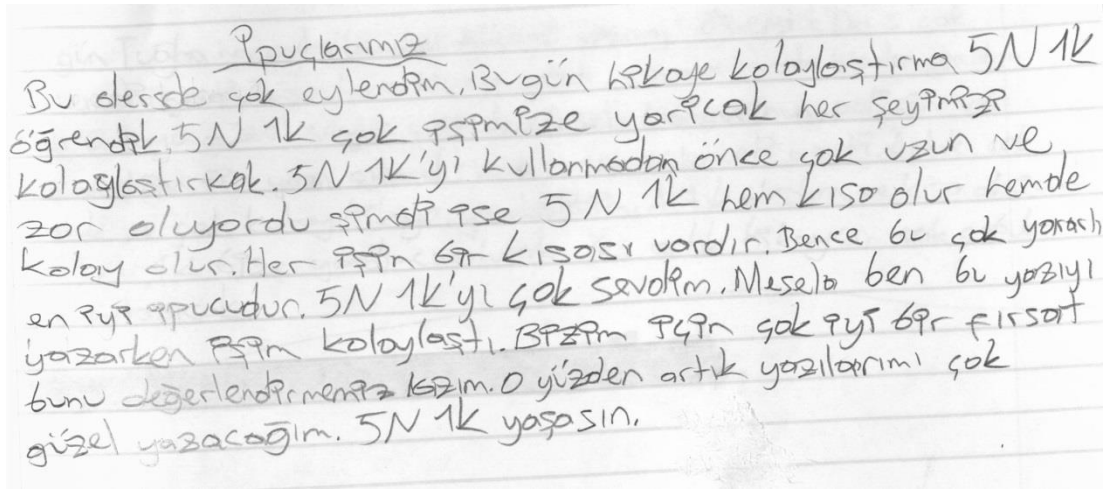 İpuçlarımız
Bu dersde çok eylendim. Bugün hikaye kolaylaştırma 5N 1K
öğrendik. 5N 1K çok işimize yaricak her şeyimizi
kolaylaştırkak. 5N 1K'yı kullanmadan önce çok uzun ve
zor oluyordu şimdi ise 5N 1K hem kısa olur hemde
kolay olur. Her işin bir kısası vardır. Bence bu çok yararlı
en iyi ipucudur. 5N 1K'yı çok sevdim. Mesela ben bu yazıyı
yazarken işim kolaylaştı. Bizim için çok iyi bir fırsat
bunu değerlendirmemiz lazım. O yüzden artık yazılarımı çok
güzel yazacağım. 5N 1K yaşasın.